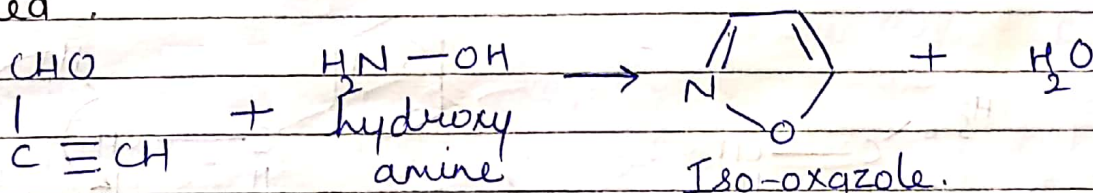 ed.
CHO
|
C ≡ CH + H₂N — OH → N O + H₂O
hydroxy
amine
Iso-oxazole.